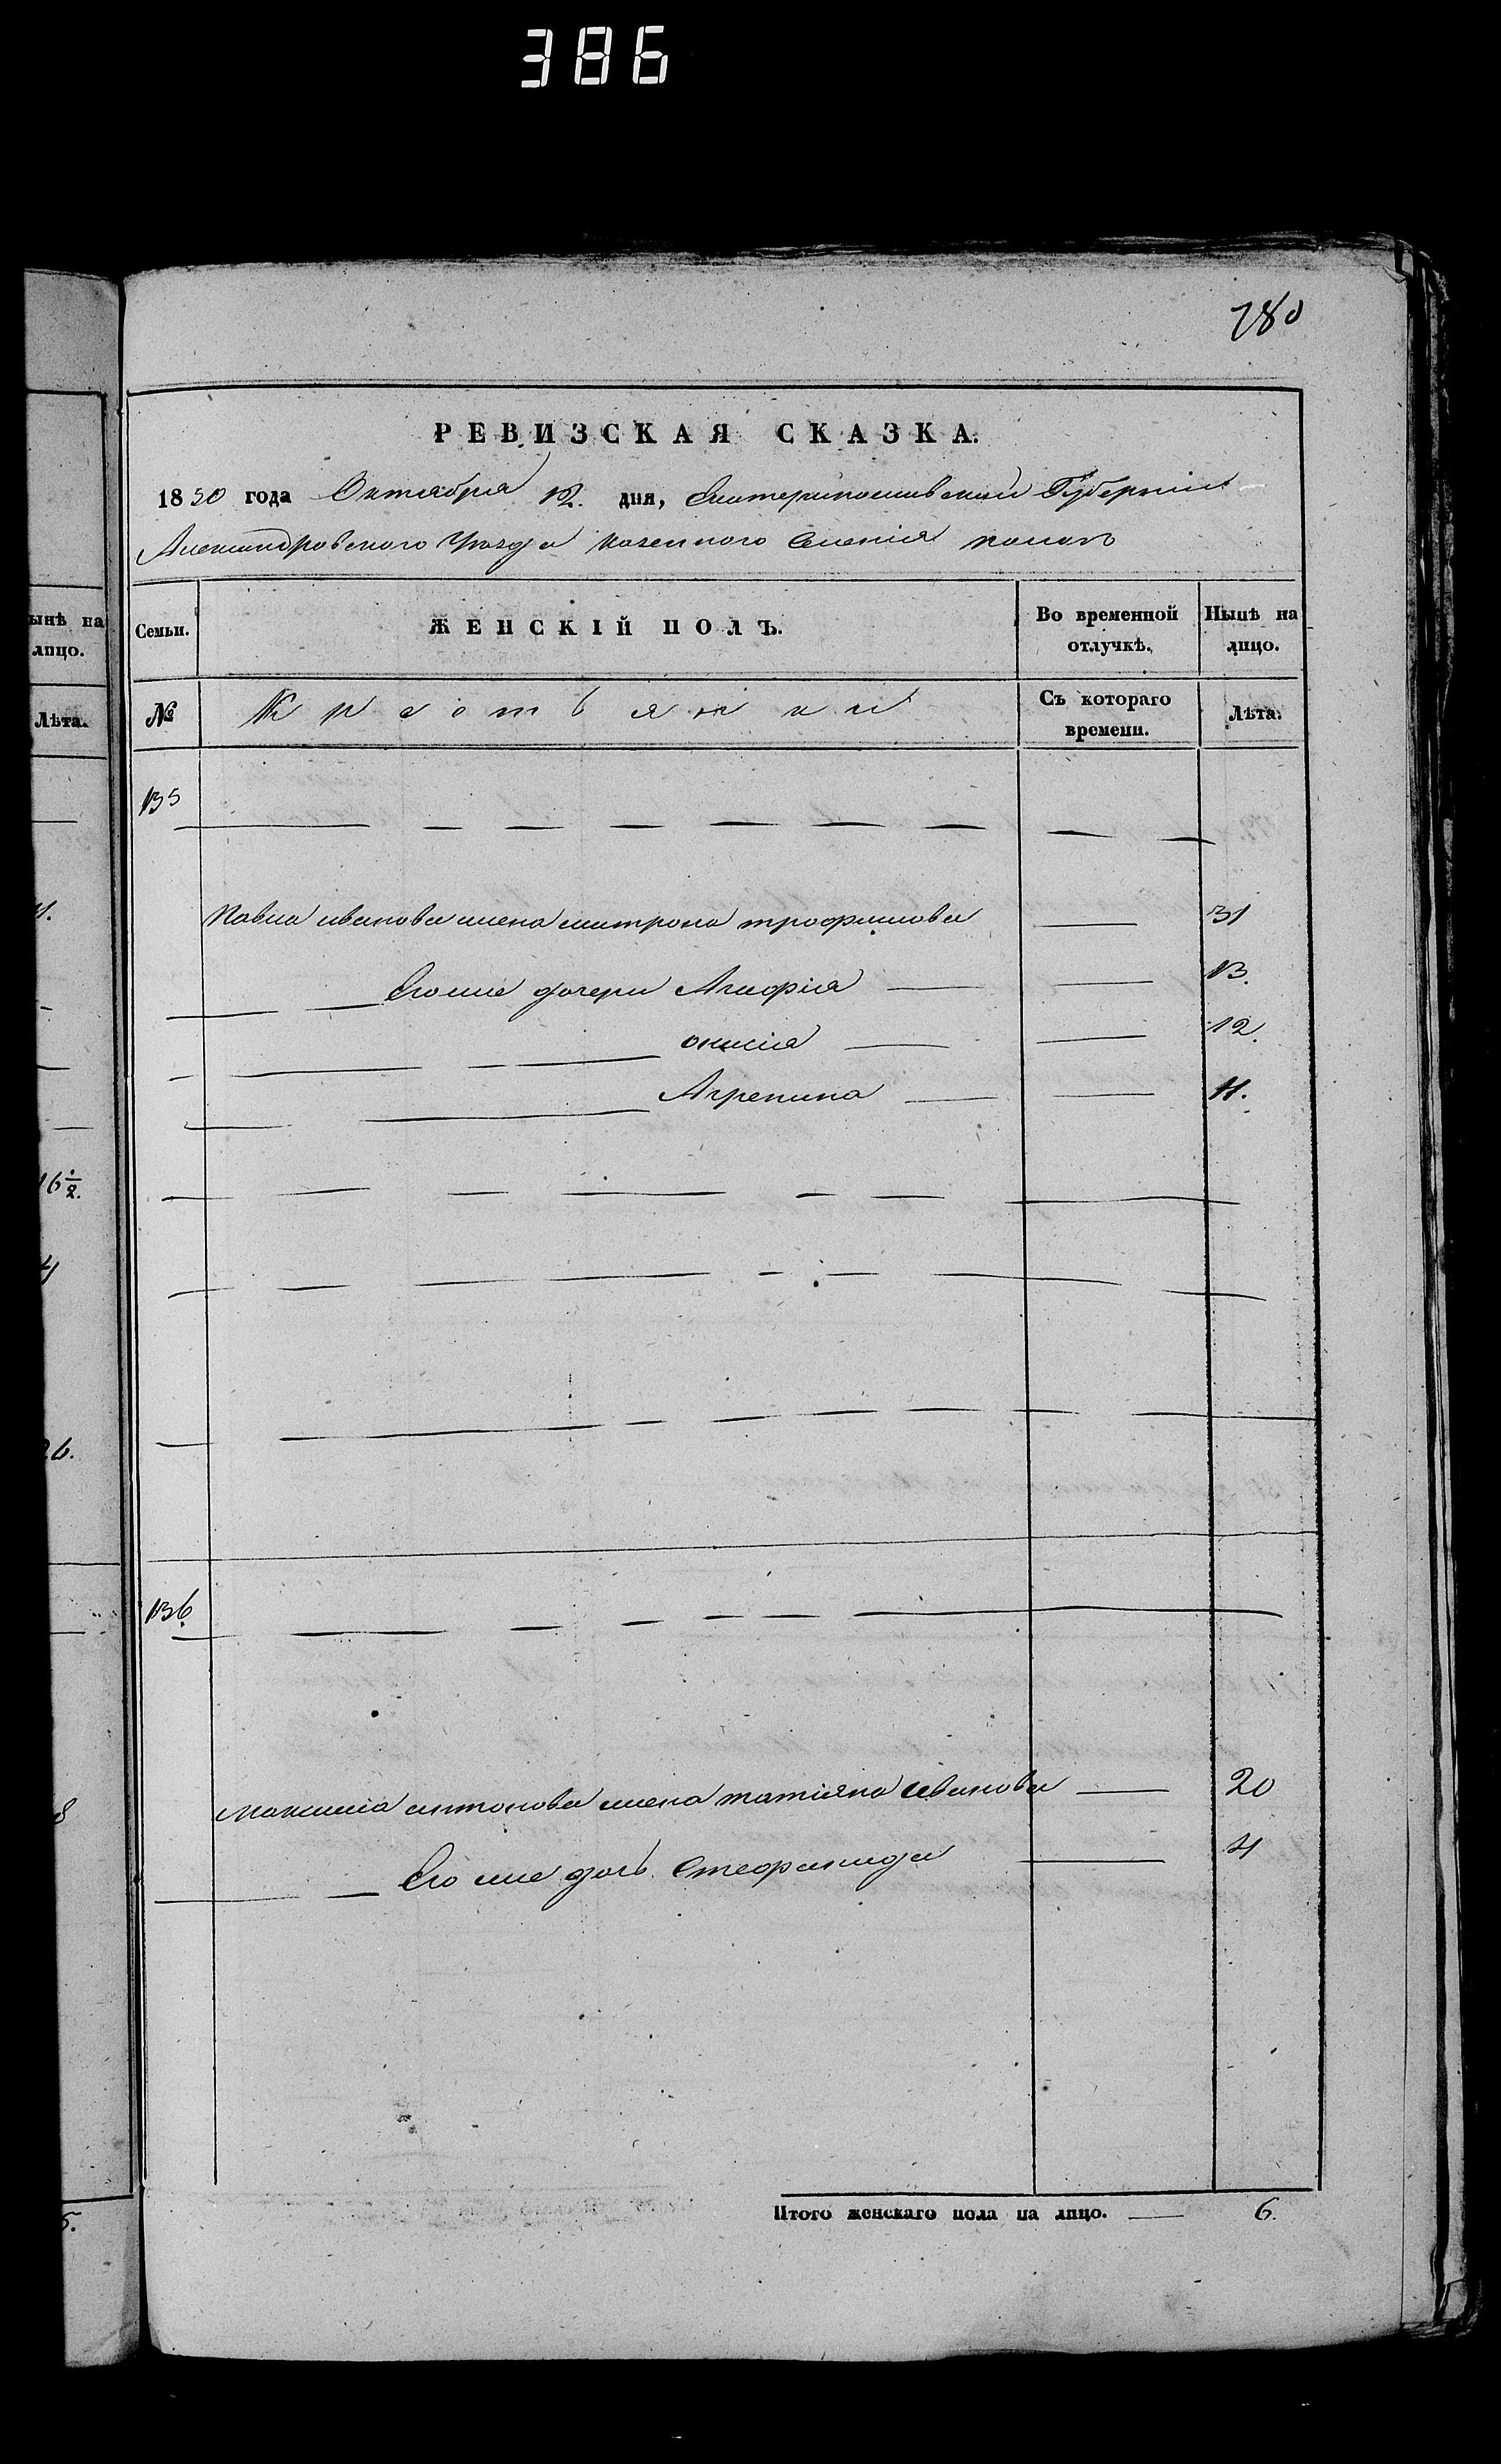 386
780
РЕВИЗСКАЯ СКАЗКА.
1850 года Октября 12. дня, Екатеринославской Губернии
Александровского Уезда казенного Селения
ынѣ на
лицо.
Лѣта.
Семьи.
ЖЕНСКІЙ ПОЛЪ.
Во временной
отлучкѣ.
Нынѣ на
лицо.
№
Крестьянки
Съ котораго
времени.
Лѣта.
135
Павла иванова жена матрона трофимова 31
Его же дочери Агафія 13.
онисія 12.
Агрепина 11.
16½.
26.
136
Максима антонова жена татіяна иванова 20
Его же дочь Стефанида 4
8
Итого женскаго пола на лицо. 6.